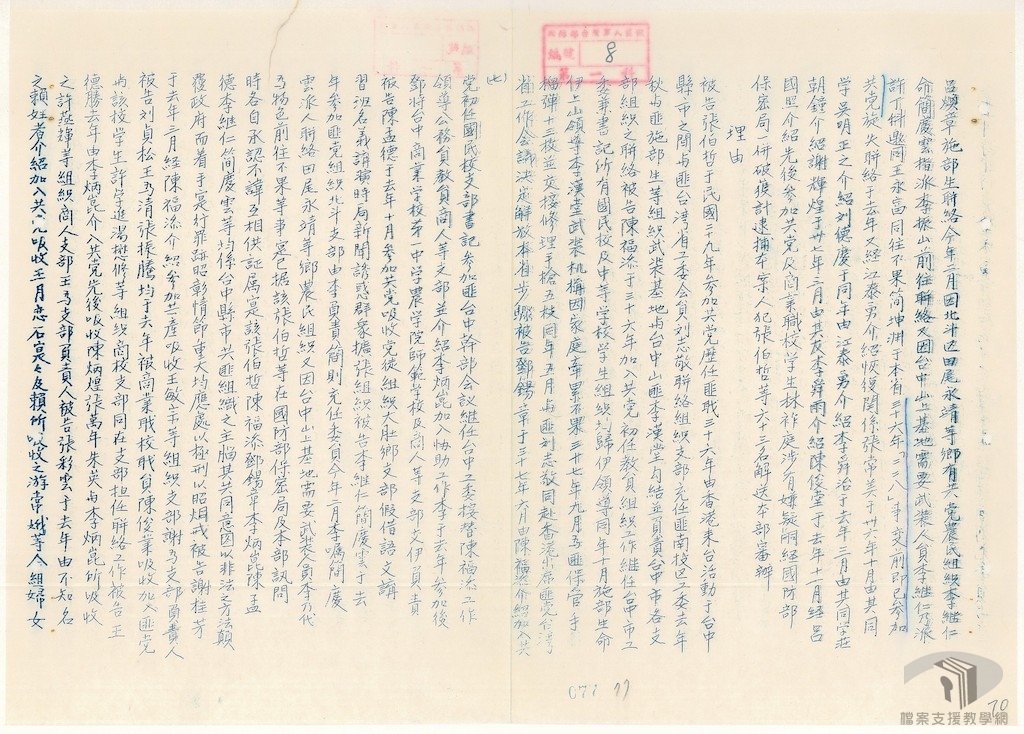 8
呂煥章施部生聯絡今年二月因北斗区田尾永靖等鄉有共党農民組织李継仁
命簡慶雲指派李振山前往聯絡又因台中山上基地需要武装人員李継仁乃派
許 件邀同王永富同往不果简坤渊于本省三十六年「三八」事变前即已參加
共党旋失联络于去年又経江泰勇介紹恢復関係張常美于卅六年十月由其同
学吴明正之介紹刘德慶于同年由江泰勇介紹李舜治于去年三月由其同学莊
朝鐘介紹謝輝煌于卅七年三月由其友李舜雨介紹陳俊堂于去年十一月経呂
國里介紹先後參加共党及商業職校学生林祚庭涉有嫌疑嗣経國防部
保密局一併破獲計逮捕本案人犯張伯哲等六十三名解送本部審辦
理由
被告張伯哲于民國二九年參加共党歷任匪職三十六年由香港来台活動于台中
縣市之間与匪台湾省工委会員刘志敬聯絡組织支部充任匪南校区工委去年
秋与匪施部生等組织武装基地与台中山匪李漢堂勾結並負責台中市各支
部組织之聯絡被告陳福添于三十六年加入共党初任教員組织工作継任台中市工
委兼書記所有國民校及中等学校学生組织划歸伊領導同年十月施部生命
伊上山領導李漢堂武装机構因家庭牽累不果三十七年九月為匪保管手
榴彈十三枚並交接修理手槍五枝同年五月与匪刘志敬同赴香港出席匪党台湾
省工作会議決定解放本省步驟被告鄧錫章于三十七年六月由陳福添介紹加入共
(七)
党初任國民校支部書記參加匪台中幹部会议继任台中工委接替陳福添工作
領導公務員教員商人等支部並介紹李炳崑加入协助工作李于去年參加後
鄧将台中商業学校第一中学農学院師範学校及商人等支部交伊負責
被告陳孟德于去年十月參加共党吸收党徒組织大肚鄉支部假借語文講
習班名義講演時局新聞誘惑群衆擴張組织被告李継仁簡慶雲于去
年參加匪党組织北斗支部由李負責簡則充任委員今年二月李嘱簡慶
雲派人聯絡田尾永靖等鄉農民組织又因台中山上基地需要武装人員李乃代
為物色前往不果等事寔已据該張伯哲等在國防部保密局及本部訊問
時各自承認不諱互相供証属寔是該張伯哲陳福添鄧錫章李炳崑陳孟
德李継仁簡慶雲等均係台中縣市共匪組织之主脑其共同意図以非法之方法顛
覆政府而着手寔行罪跡昭彰情節重大均應處以極刑以昭炯戒被告謝桂芳
于去年三月経陳福添介紹參加共產吸收王敏宗等組织支部謝為支部負責人
被告刘貞松王為清張振騰均于去年被商業職校職員陳俊業吸收加入匪党
与該校学生許学進湯 修等組织商校支部同在支部担任聯絡工作被告王
德勝去年由李炳崑介入共党先後吸收陳炳煌張萬年朱 与李炳崑所吸收
之許燕輝等組织商人支部王為支部負責人被告張彩雲于去年由不知名
之賴姓者介紹加入共党吸收王月恋石寔 及賴所吸收之游常娥等合組婦女
077 77
70
檔案支援教學網